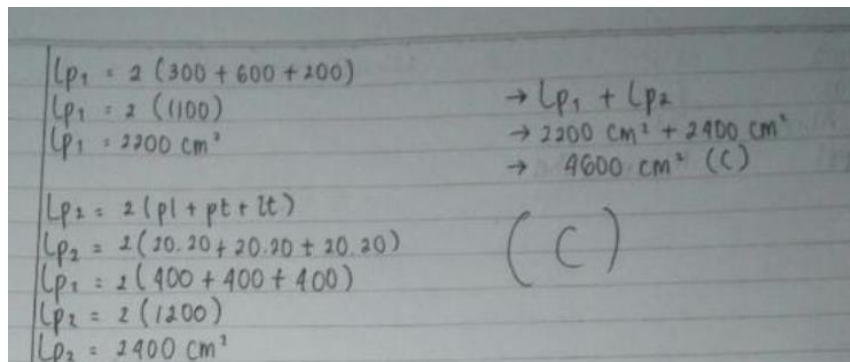 Lp₁ = 2 (300 + 600 + 200)
Lp₁ = 2 (1100)
Lp₁ = 2200 cm²
Lp₂ = 2 (pl + pt + lt)
Lp₂ = 2 (20.20 + 20.20 + 20.20)
Lp₂ = 2 (400 + 400 + 400)
Lp₂ = 2 (1200)
Lp₂ = 2400 cm²
→ Lp₁ + Lp₂
→ 2200 cm² + 2400 cm²
→ 4600 cm² (C)
(C)